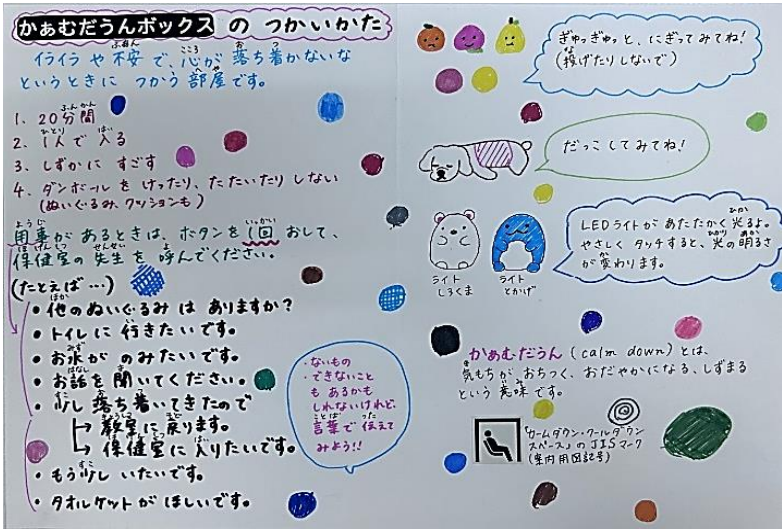 かぁむだうんボックス の つかいかた
イライラ や 不安 で、心が 落ち着かないな
というときに つかう 部屋 です。
1. 20分間
2. 1人で 入る
3. しずかに すごす
4. ダンボール を けったり、たたいたり しない
(ぬいぐるみ、クッションも)
用事が あるときは、ボタンを 1回 おして、
保健室の 先生を 呼んでください。
(たとえば…)
・他の ぬいぐるみ は ありますか?
・トイレに 行きたいです。
・お水が のみたいです。
・お話を 聞いてください。
・少し 落ち着いてきたので
→ 教室に 戻ります。
→ 保健室に 入りたいです。
・もう少し いたいです。
・タオルケットが ほしいです。
・ないもの
・できないこと
も あるかも
しれないけれど、
言葉で 伝えて
みよう!!
ぎゅっぎゅっと、にぎってみてね!
(投げたりしないで)
だっこ してみてね!
LEDライトが あたたかく 光るよ。
やさしく タッチすると、光の 明るさ
が 変わります。
ライト
しろくま
ライト
とかげ
かぁむだうん (calm down) とは、
気もちが おちつく、おだやかになる、しずまる
という 意味 です。
「カームダウン・クールダウン
スペース」の JISマーク
(案内用図記号)